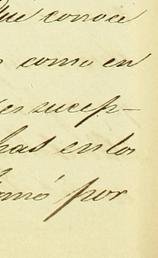 que conoce
como en
sucep-
has en los
tomó por